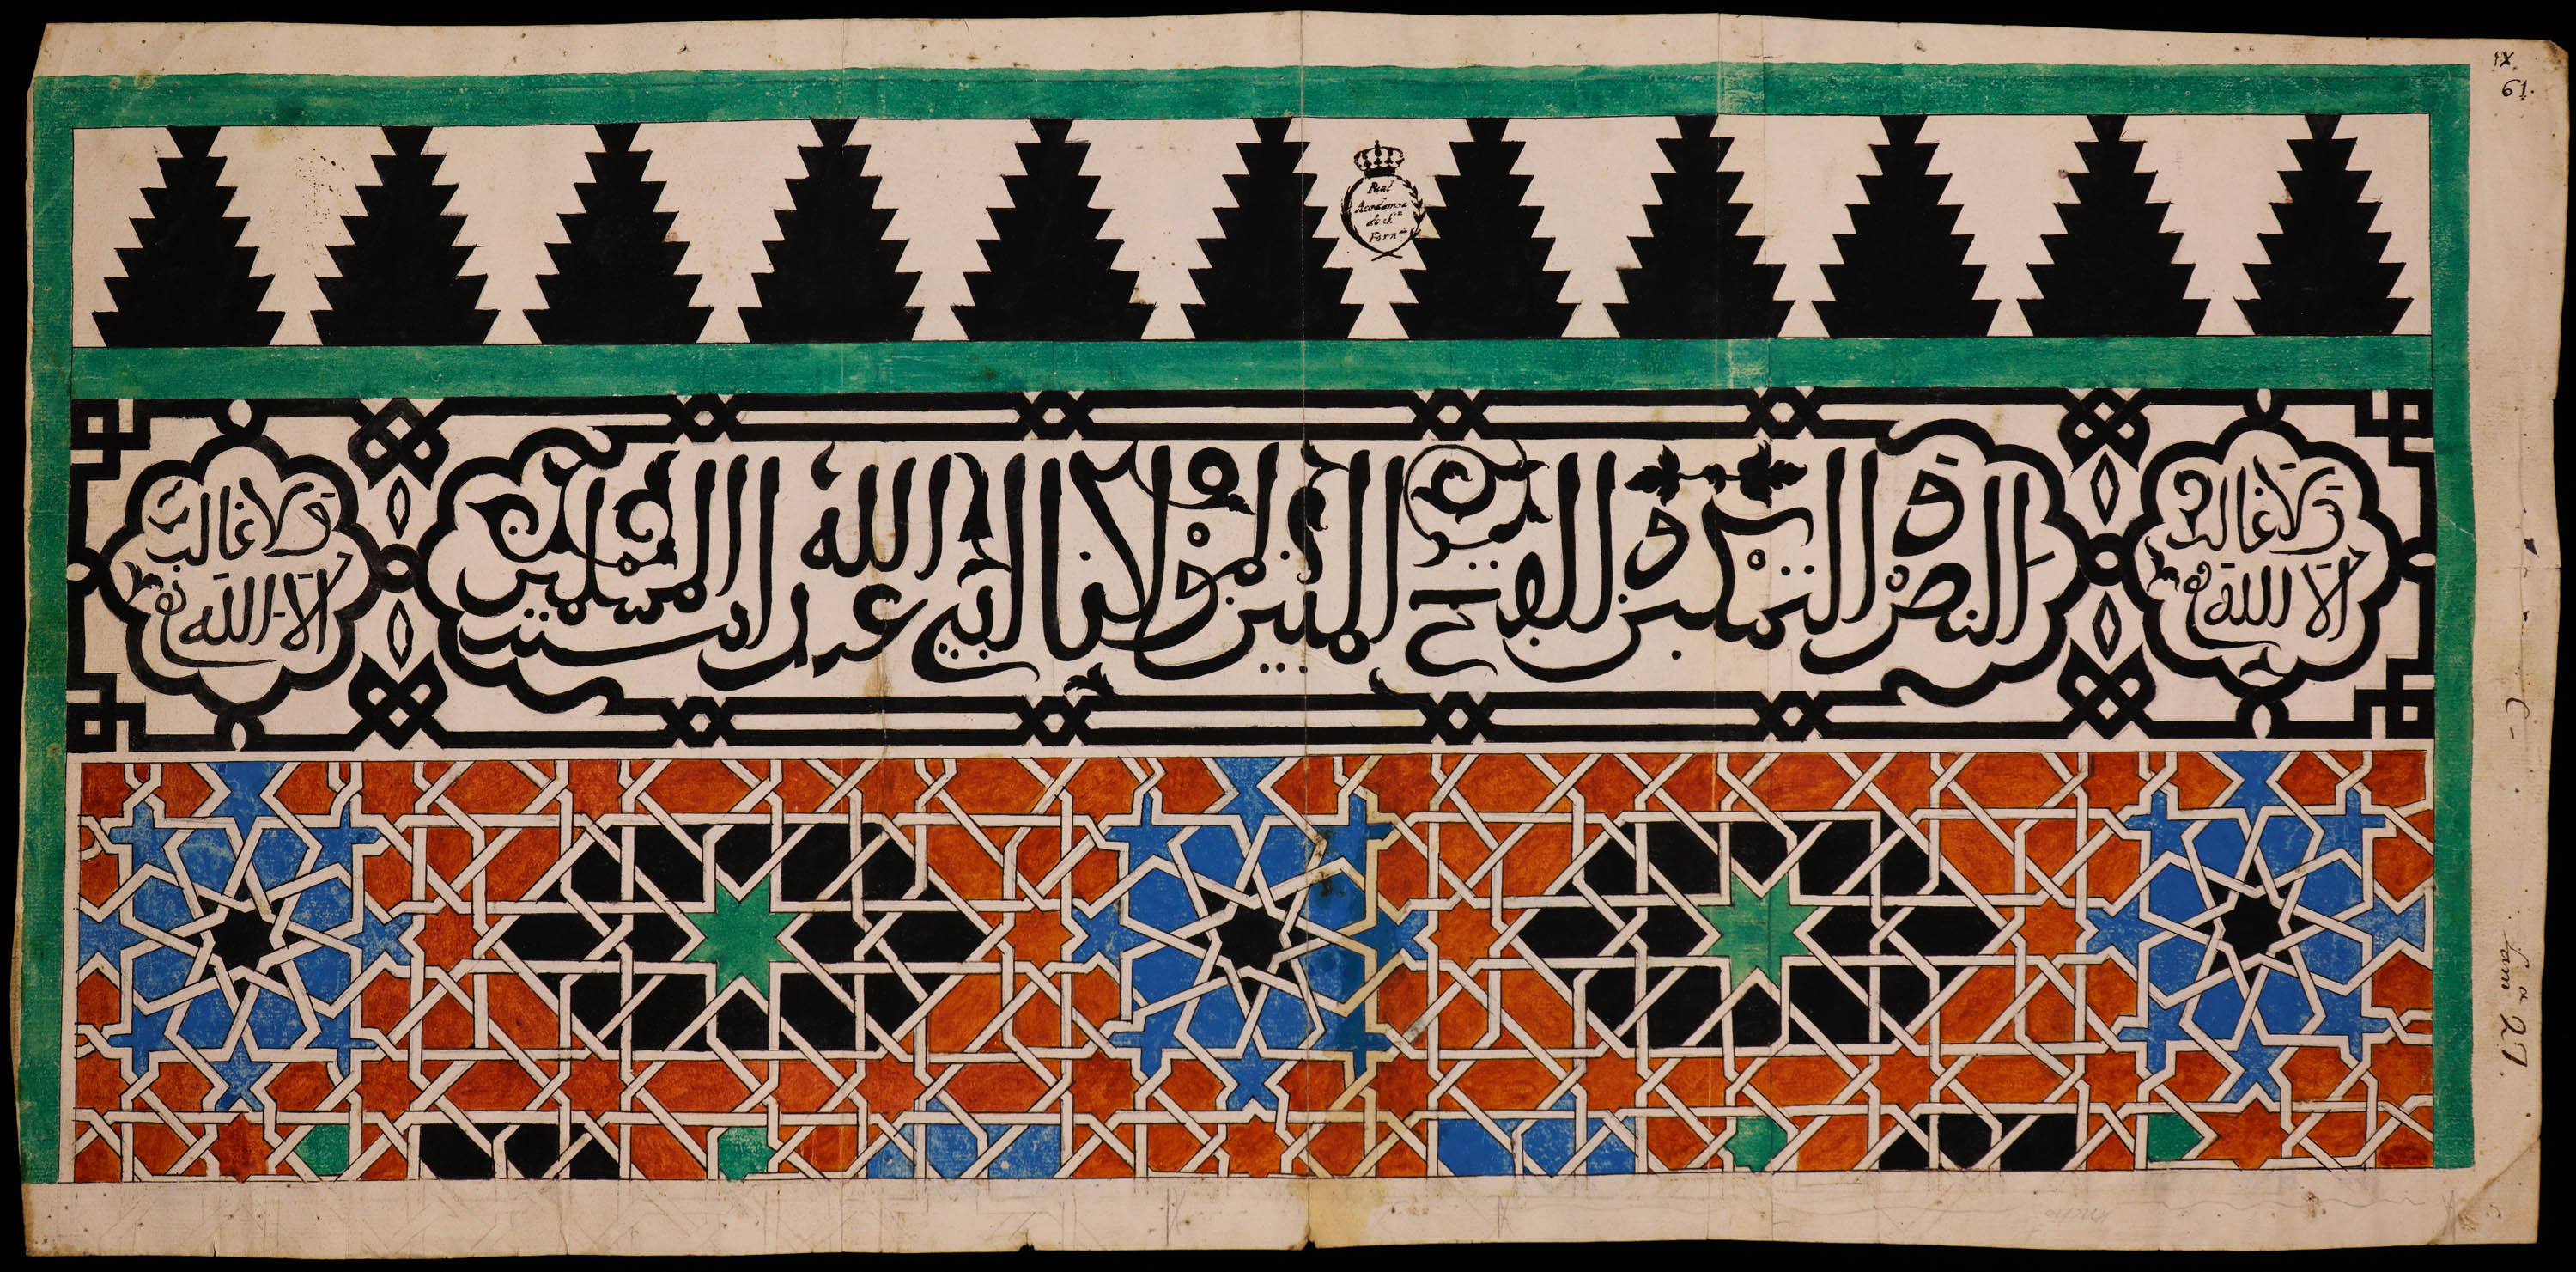 IX
61.
Real
Academia
de Sn.
Ferndo.
ولا غالب
إلا الله
النصر والتمكين والفتح المبين لمولانا أبي عبد الله أمير المسلمين
ولا غالب
إلا الله
Lamª 27